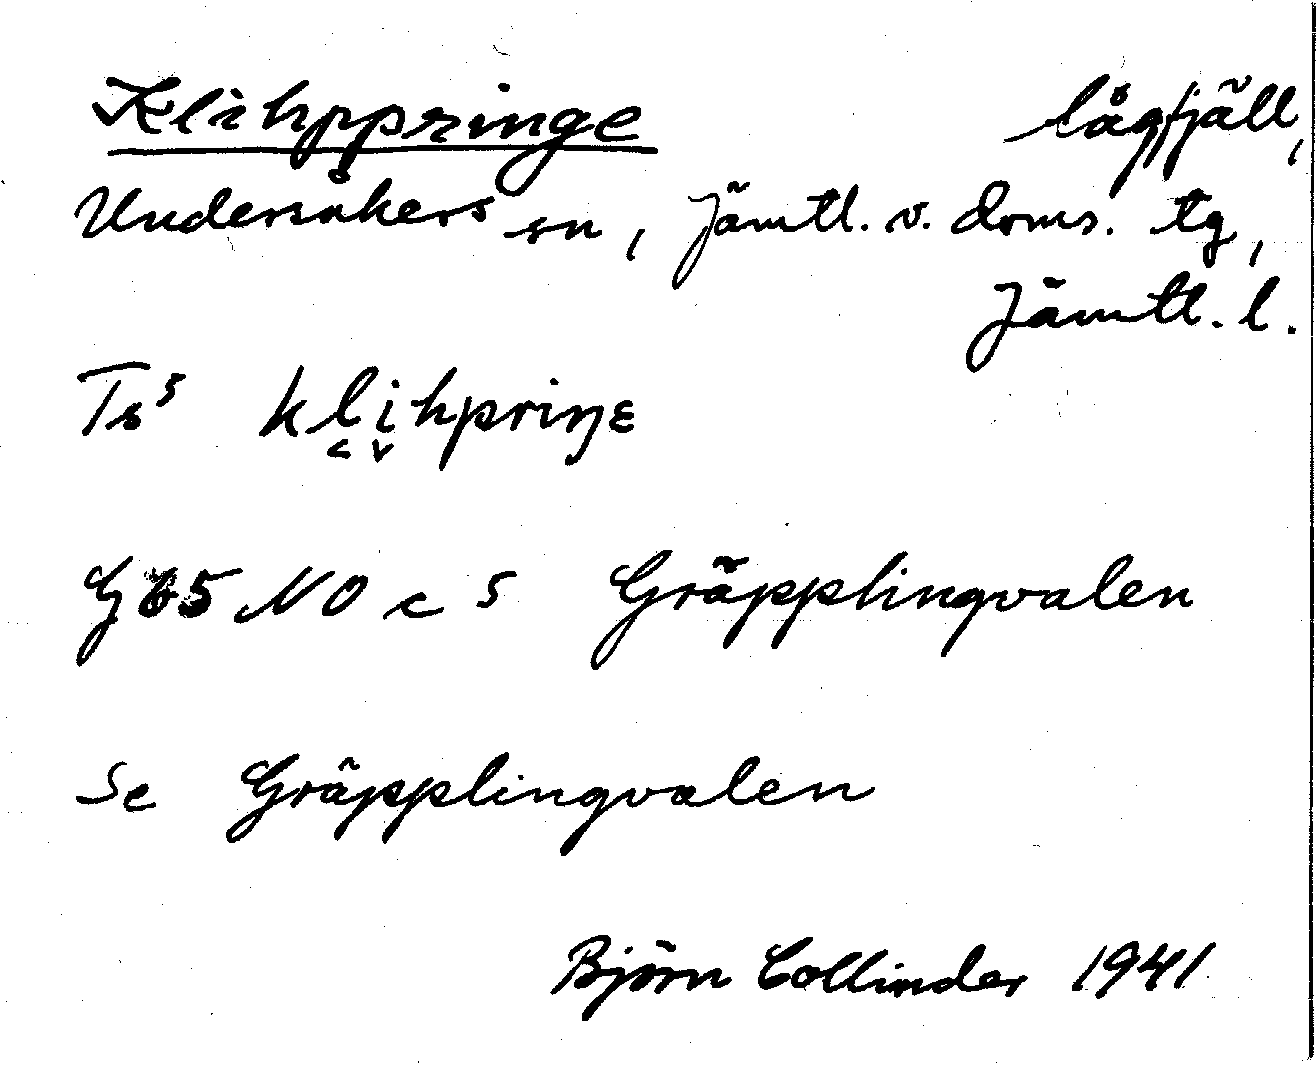 Klihppringe lågfjäll,
Undersåkers sn, Jämtl. v. doms. tg,
Jämtl. l.
Ts⁵ kl̬i̬hpriŋɛ
G65 NO c 5 Gräpplingvalen
Se Gräpplingvalen
Björn Collinder 1941